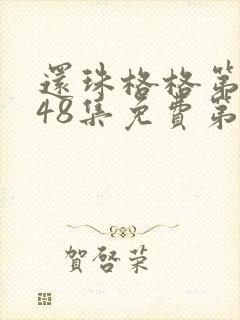 還珠格格第
48集免費第
賀啓荣